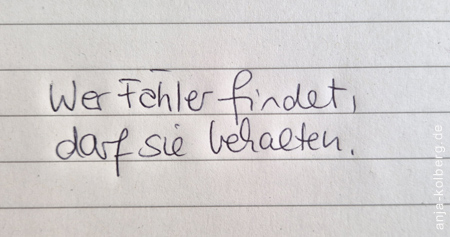 Wer Fehler findet,
darf sie behalten.
anja-kolberg.de